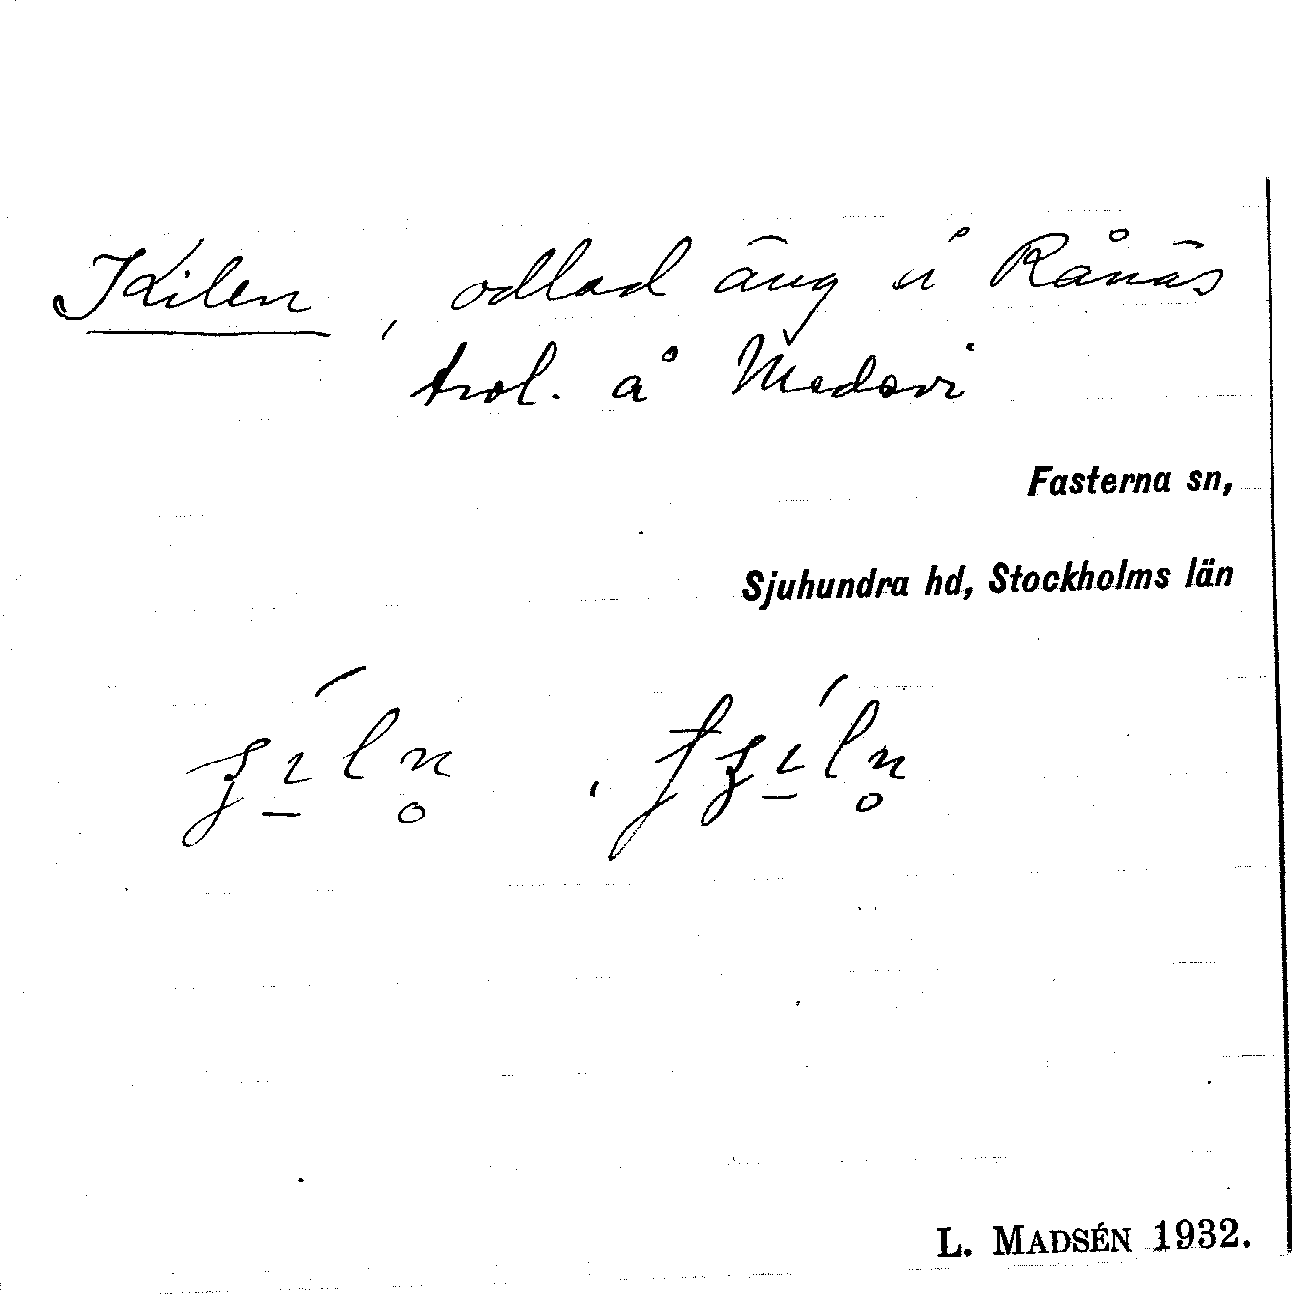 Kilen, odlad äng å Rånäs
trol. å Medevi
Fasterna sn,
Sjuhundra hd, Stockholms län
L. MADSÉN 1932.